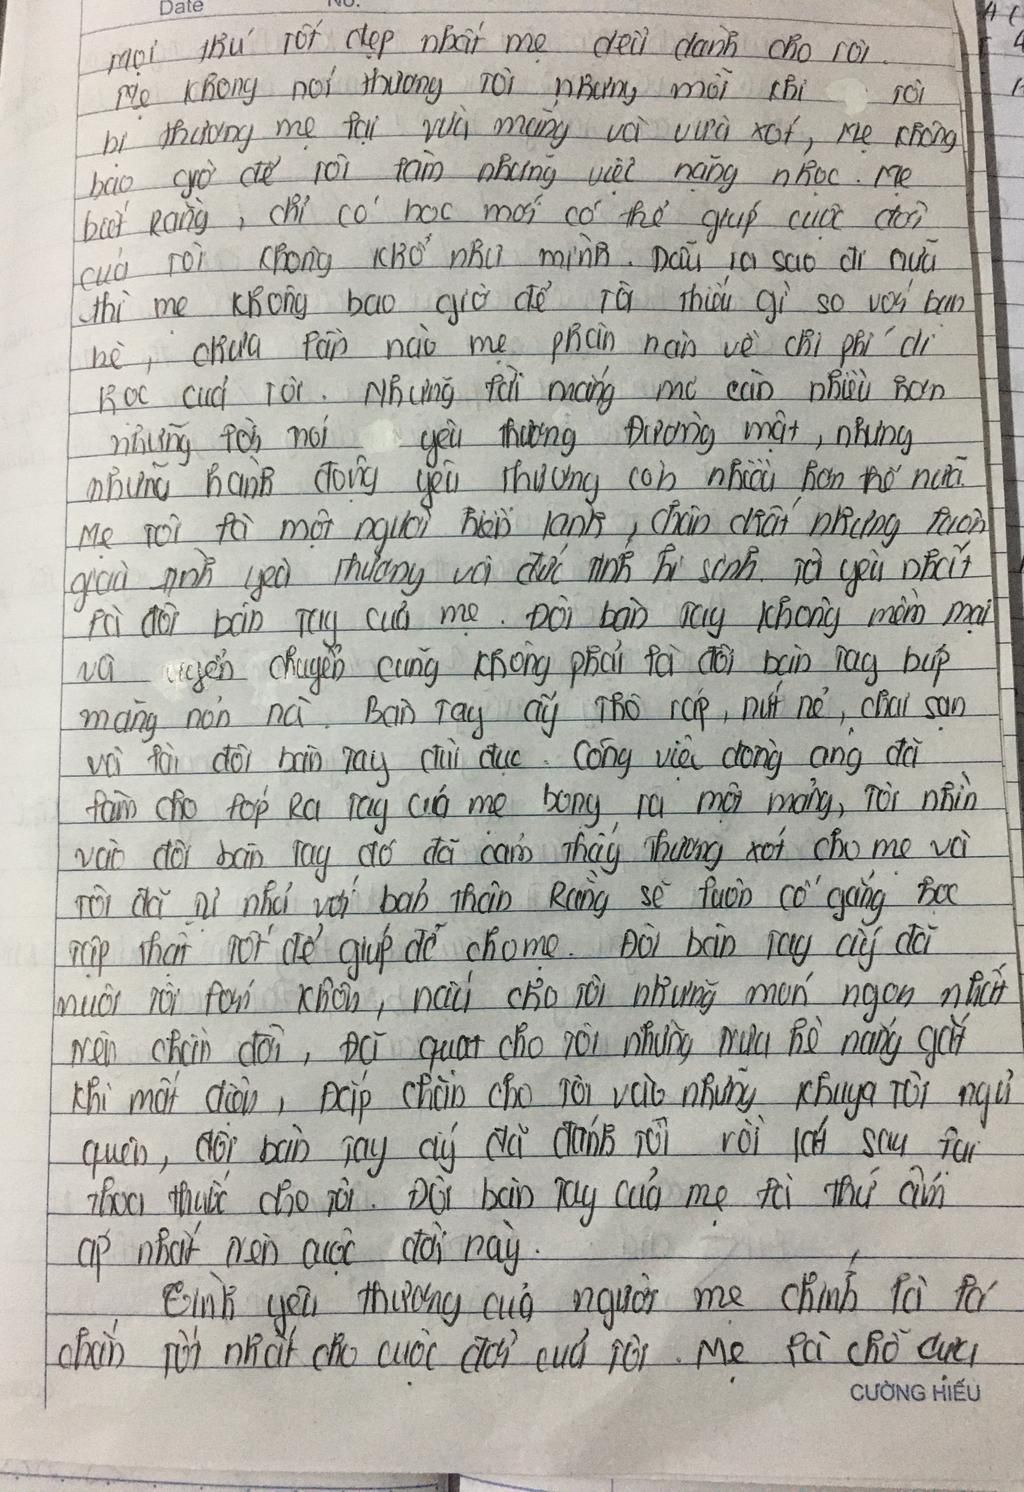 Date No.
mọi thứ tốt đẹp nhất mẹ đều dành cho tôi.
Mẹ không nói thương tôi nhưng mỗi khi tôi
bị thương mẹ lại vừa mắng và vừa xót, Mẹ không
bao giờ để tôi làm những việc nặng nhọc. Mẹ
biết Rằng, chỉ có học mới có thể giúp cuộc đời
của tôi không khổ như mình. Dẫu ra sao đi nữa
thì mẹ không bao giờ để tôi thiếu gì so với bạn
bè, chưa lần nào mẹ phàn nàn về chi phí đi
học của tôi. Nhưng lời mắng mỏ còn nhiều hơn
những lời nói yêu thương Đường mật, nhưng
những hành động yêu thương còn nhiều hơn thế nữa.
Mẹ tôi là một người hiền lành, chân chất nhưng luôn
giàu tình yêu thương và đức tính hi sinh. Tôi yêu nhất
là đôi bàn tay của mẹ. Đôi bàn tay không mềm mại
và uyển chuyển cũng không phải là đôi bàn tay búp
măng nõn nà. Bàn tay ấy thô ráp, nứt nẻ, chai sạn
và là đôi bàn tay đùi đục. Công việc đồng áng đã
làm cho lớp Ra tay của mẹ bong ra một mảng, tôi nhìn
vào đôi bàn tay đó đã cảm thấy thương xót cho mẹ và
tôi đã tự nhủ với bản thân Rằng sẽ luôn cố gắng học
tập thật tốt để giúp đỡ cho mẹ. Đôi bàn tay ấy đã
nuôi tôi lớn khôn, nấu cho tôi những món ngon nhất
trên chần đời, Đã quạt cho tôi những trưa hè nắng gắt
khi mất điện, Đắp chăn cho tôi vào những khuya tôi ngủ
quên, đôi bàn tay ấy đã đánh tôi rồi lát sau lại
thoa thuốc cho tôi. Đôi bàn tay của mẹ là thứ ấm
áp nhất trên cuộc đời này.
Tình yêu thương của người mẹ chính là lá
chắn tốt nhất cho cuộc đời của tôi. Mẹ là chỗ dựa
CƯỜNG HIẾU